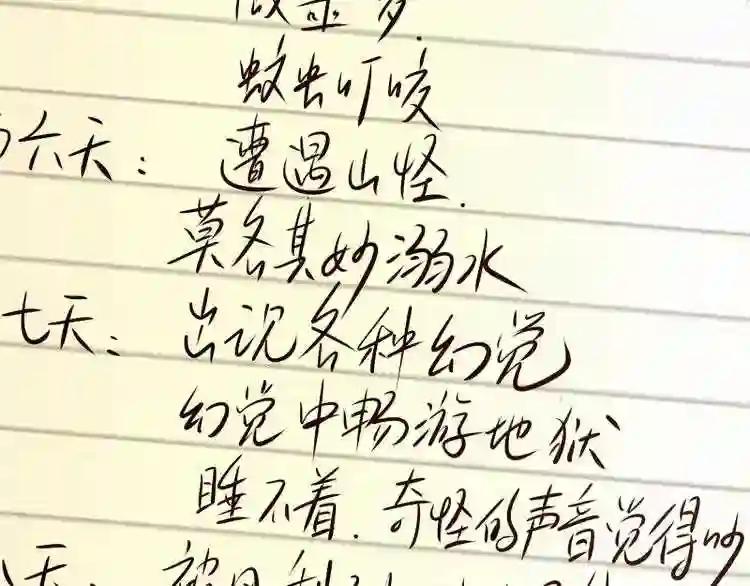 做噩梦.
蚊虫叮咬
六天： 遭遇山怪.
莫名其妙溺水
七天： 出现各种幻觉
幻觉中畅游地狱
睡不着. 奇怪的声音觉得吵
天：